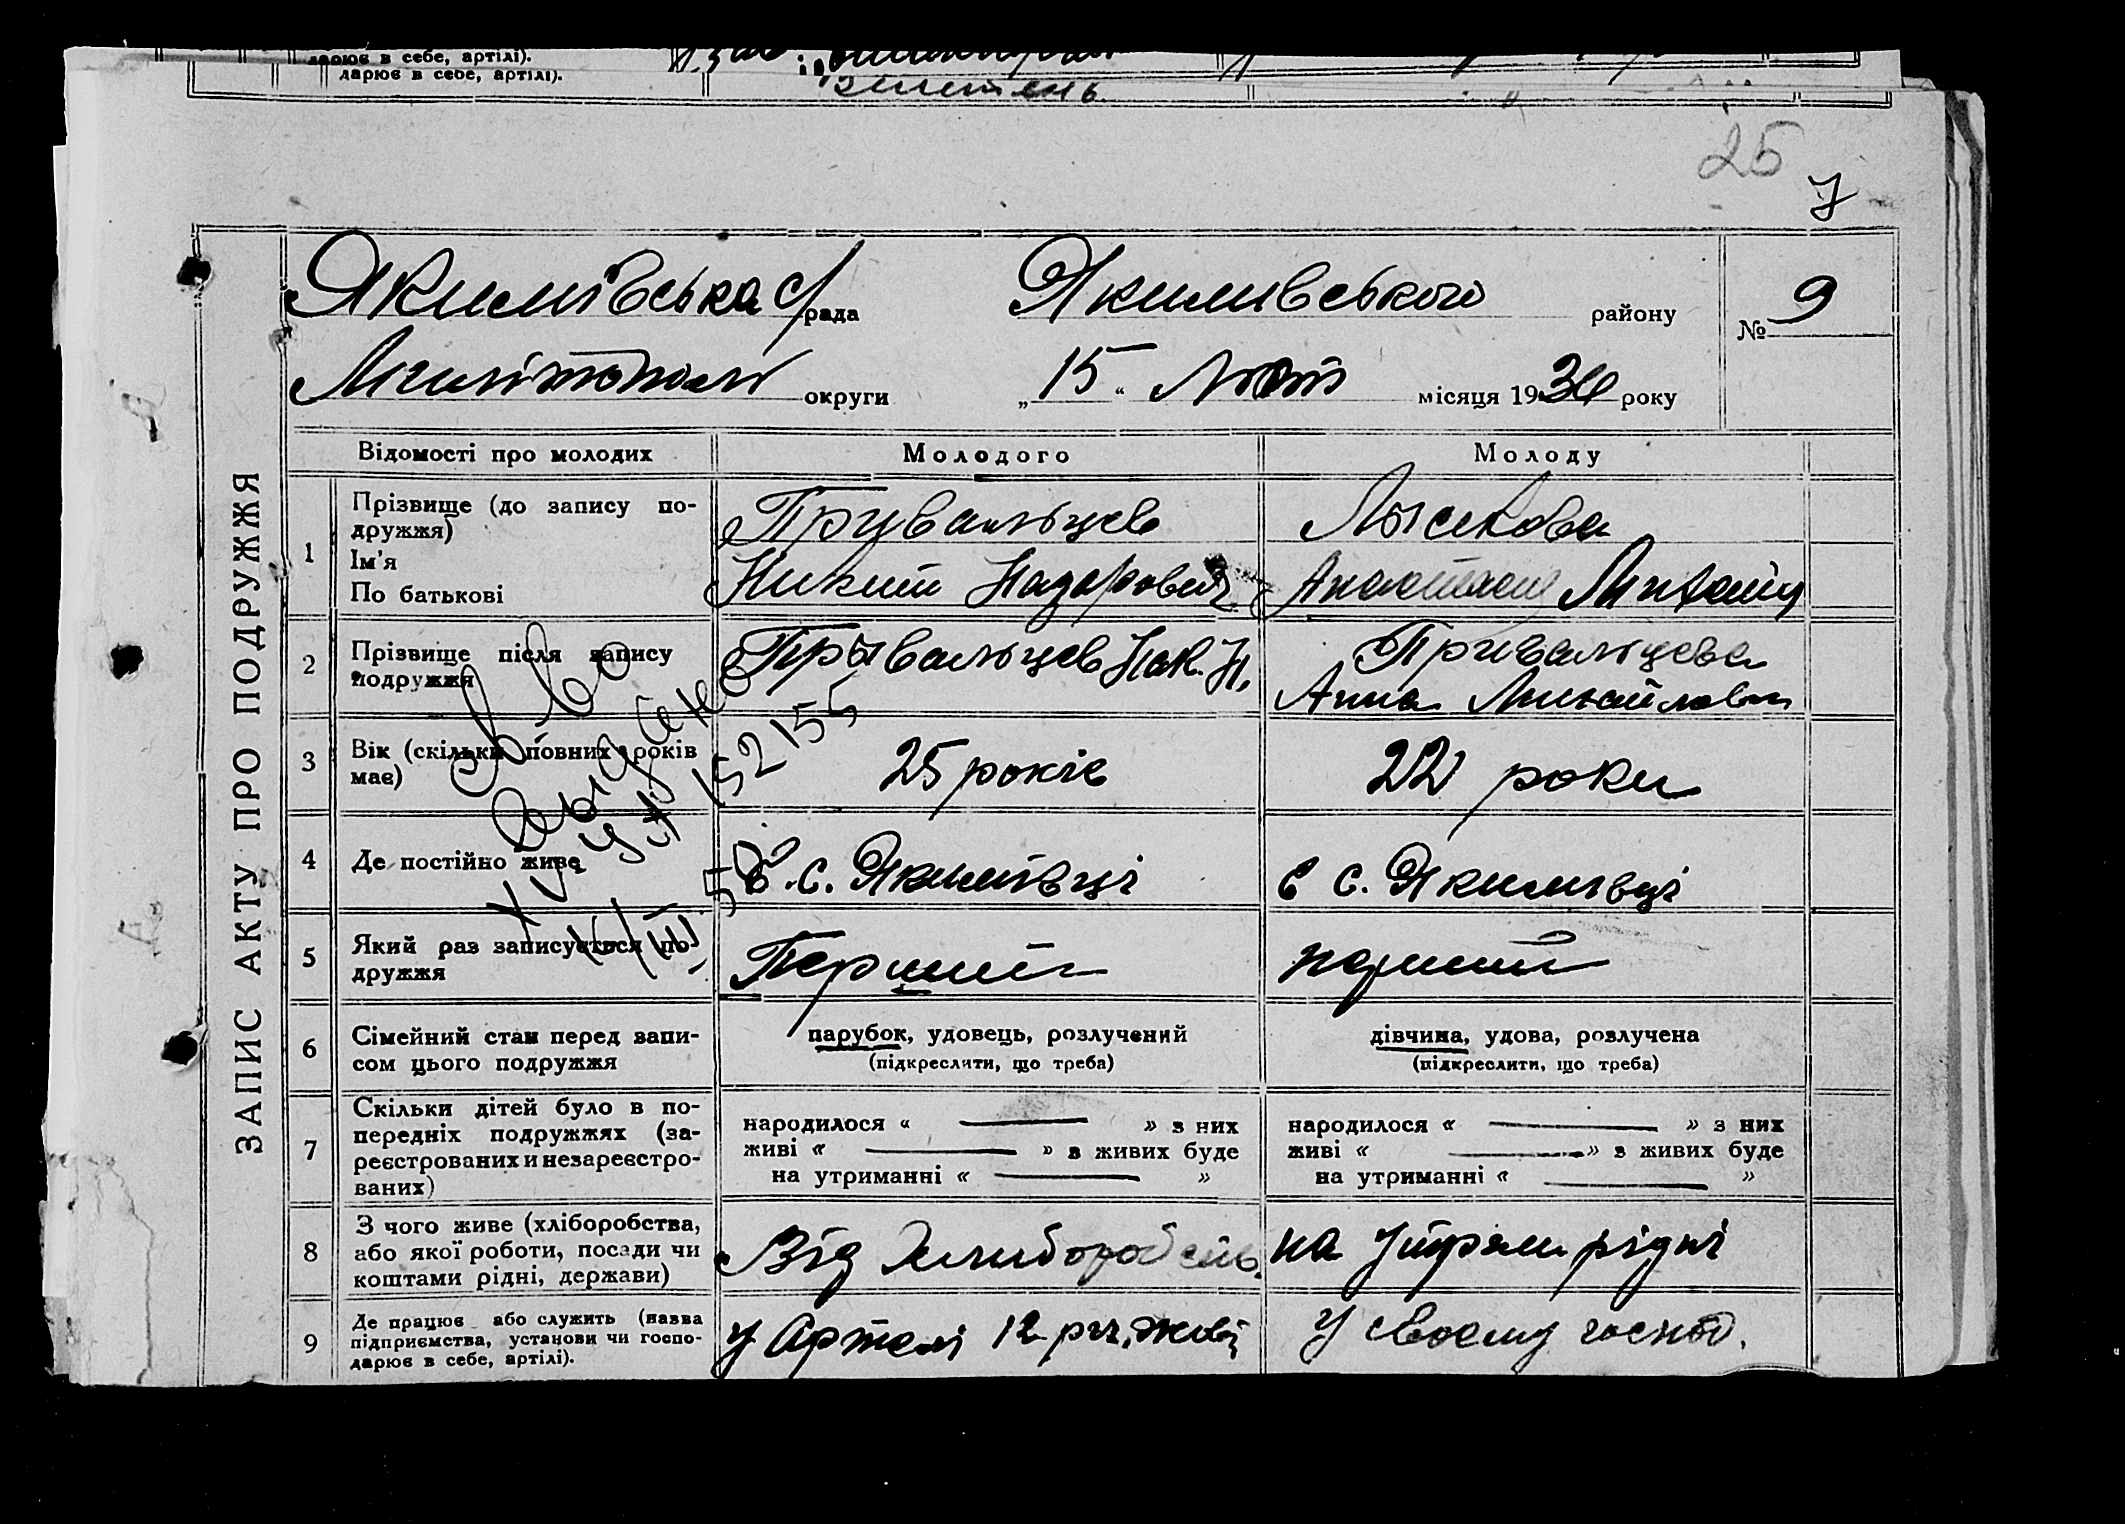 дарює в себе, артілі).
дарює в себе, артілі).
25
7
ЗАПИС АКТУ ПРО ПОДРУЖЖЯ
Якимівська с/рада Якимивського району № 9
округи „15“ Лют місяця 1930 року
Відомості про молодих Молодого Молоду
1 Прізвище (до запису подружжя) Привальцев Лысикова
Ім'я
По батькові Никит Назарович
2 Прізвище після запису подружжя Привальцев Нак. Н. Привальцева
Анна Михайловна
3 Вік (скільки повних років має) 25 років 22 роки
4 Де постійно живе в с. Якимівці в с. Якимівці
5 Який раз записується подружжя Перший перший
6 Сімейний стан перед записом цього подружжя парубок, удовець, розлучений дівчина, удова, розлучена
(підкреслити, що треба) (підкреслити, що треба)
7 Скільки дітей було в попередніх подружжях (зареєстрованих и незареєстрованих) народилося « — » з них народилося « — » з них
живі « — » з живих буде живі « — » з живих буде
на утриманні « — » на утриманні « — »
8 З чого живе (хліборобства, або якої роботи, посади чи коштами рідні, держави) Від хлиборобств. на утрим рідні
9 Де працює або служить (назва підприємства, установи чи господарює в себе, артілі). У Артелі 12 річ. Жовт У своему господ.
св-во
выдано
ХУ УА 152155